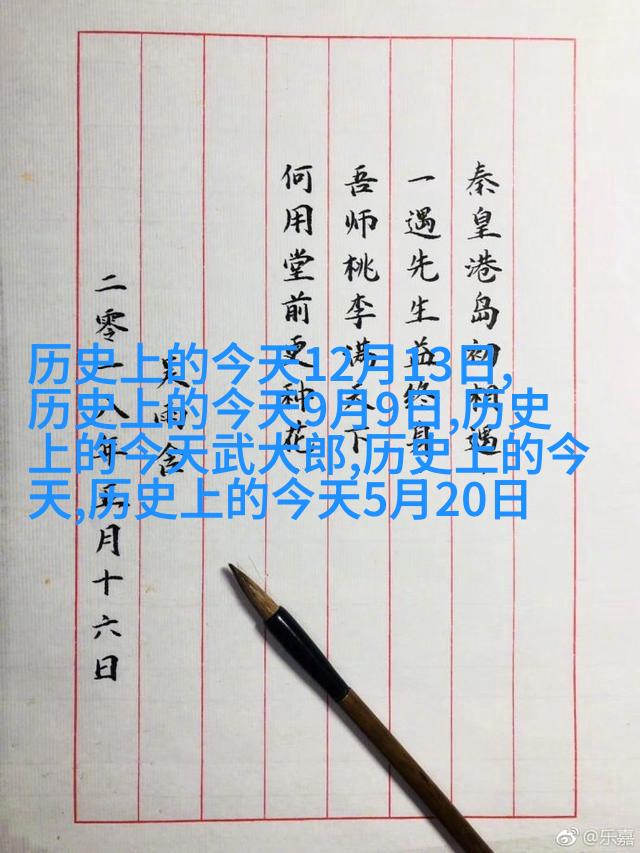 秦皇港岛初相遇
一遇先生益终身
吾师桃李满天下
何用堂前更种花
吴雨
二零一八年五月十六日
历史上的今天12月13日,
历史上的今天9月9日,历史
上的今天武大郎,历史上的今
天,历史上的今天5月20日
@乐嘉